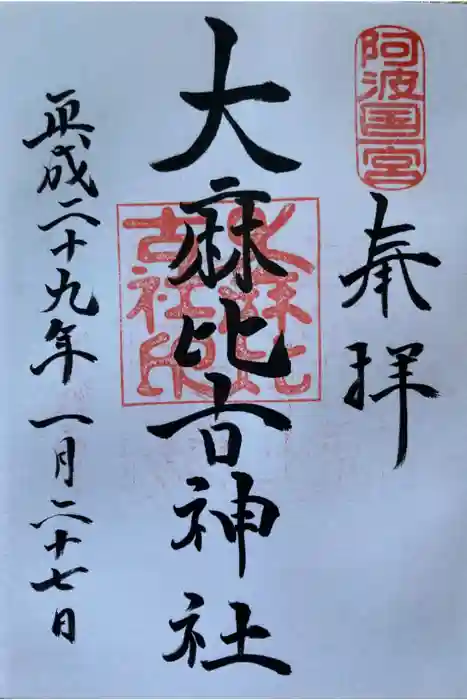 阿波国一宮
奉拝
大麻比古神社
大麻比古社印
平成二十九年一月二十七日